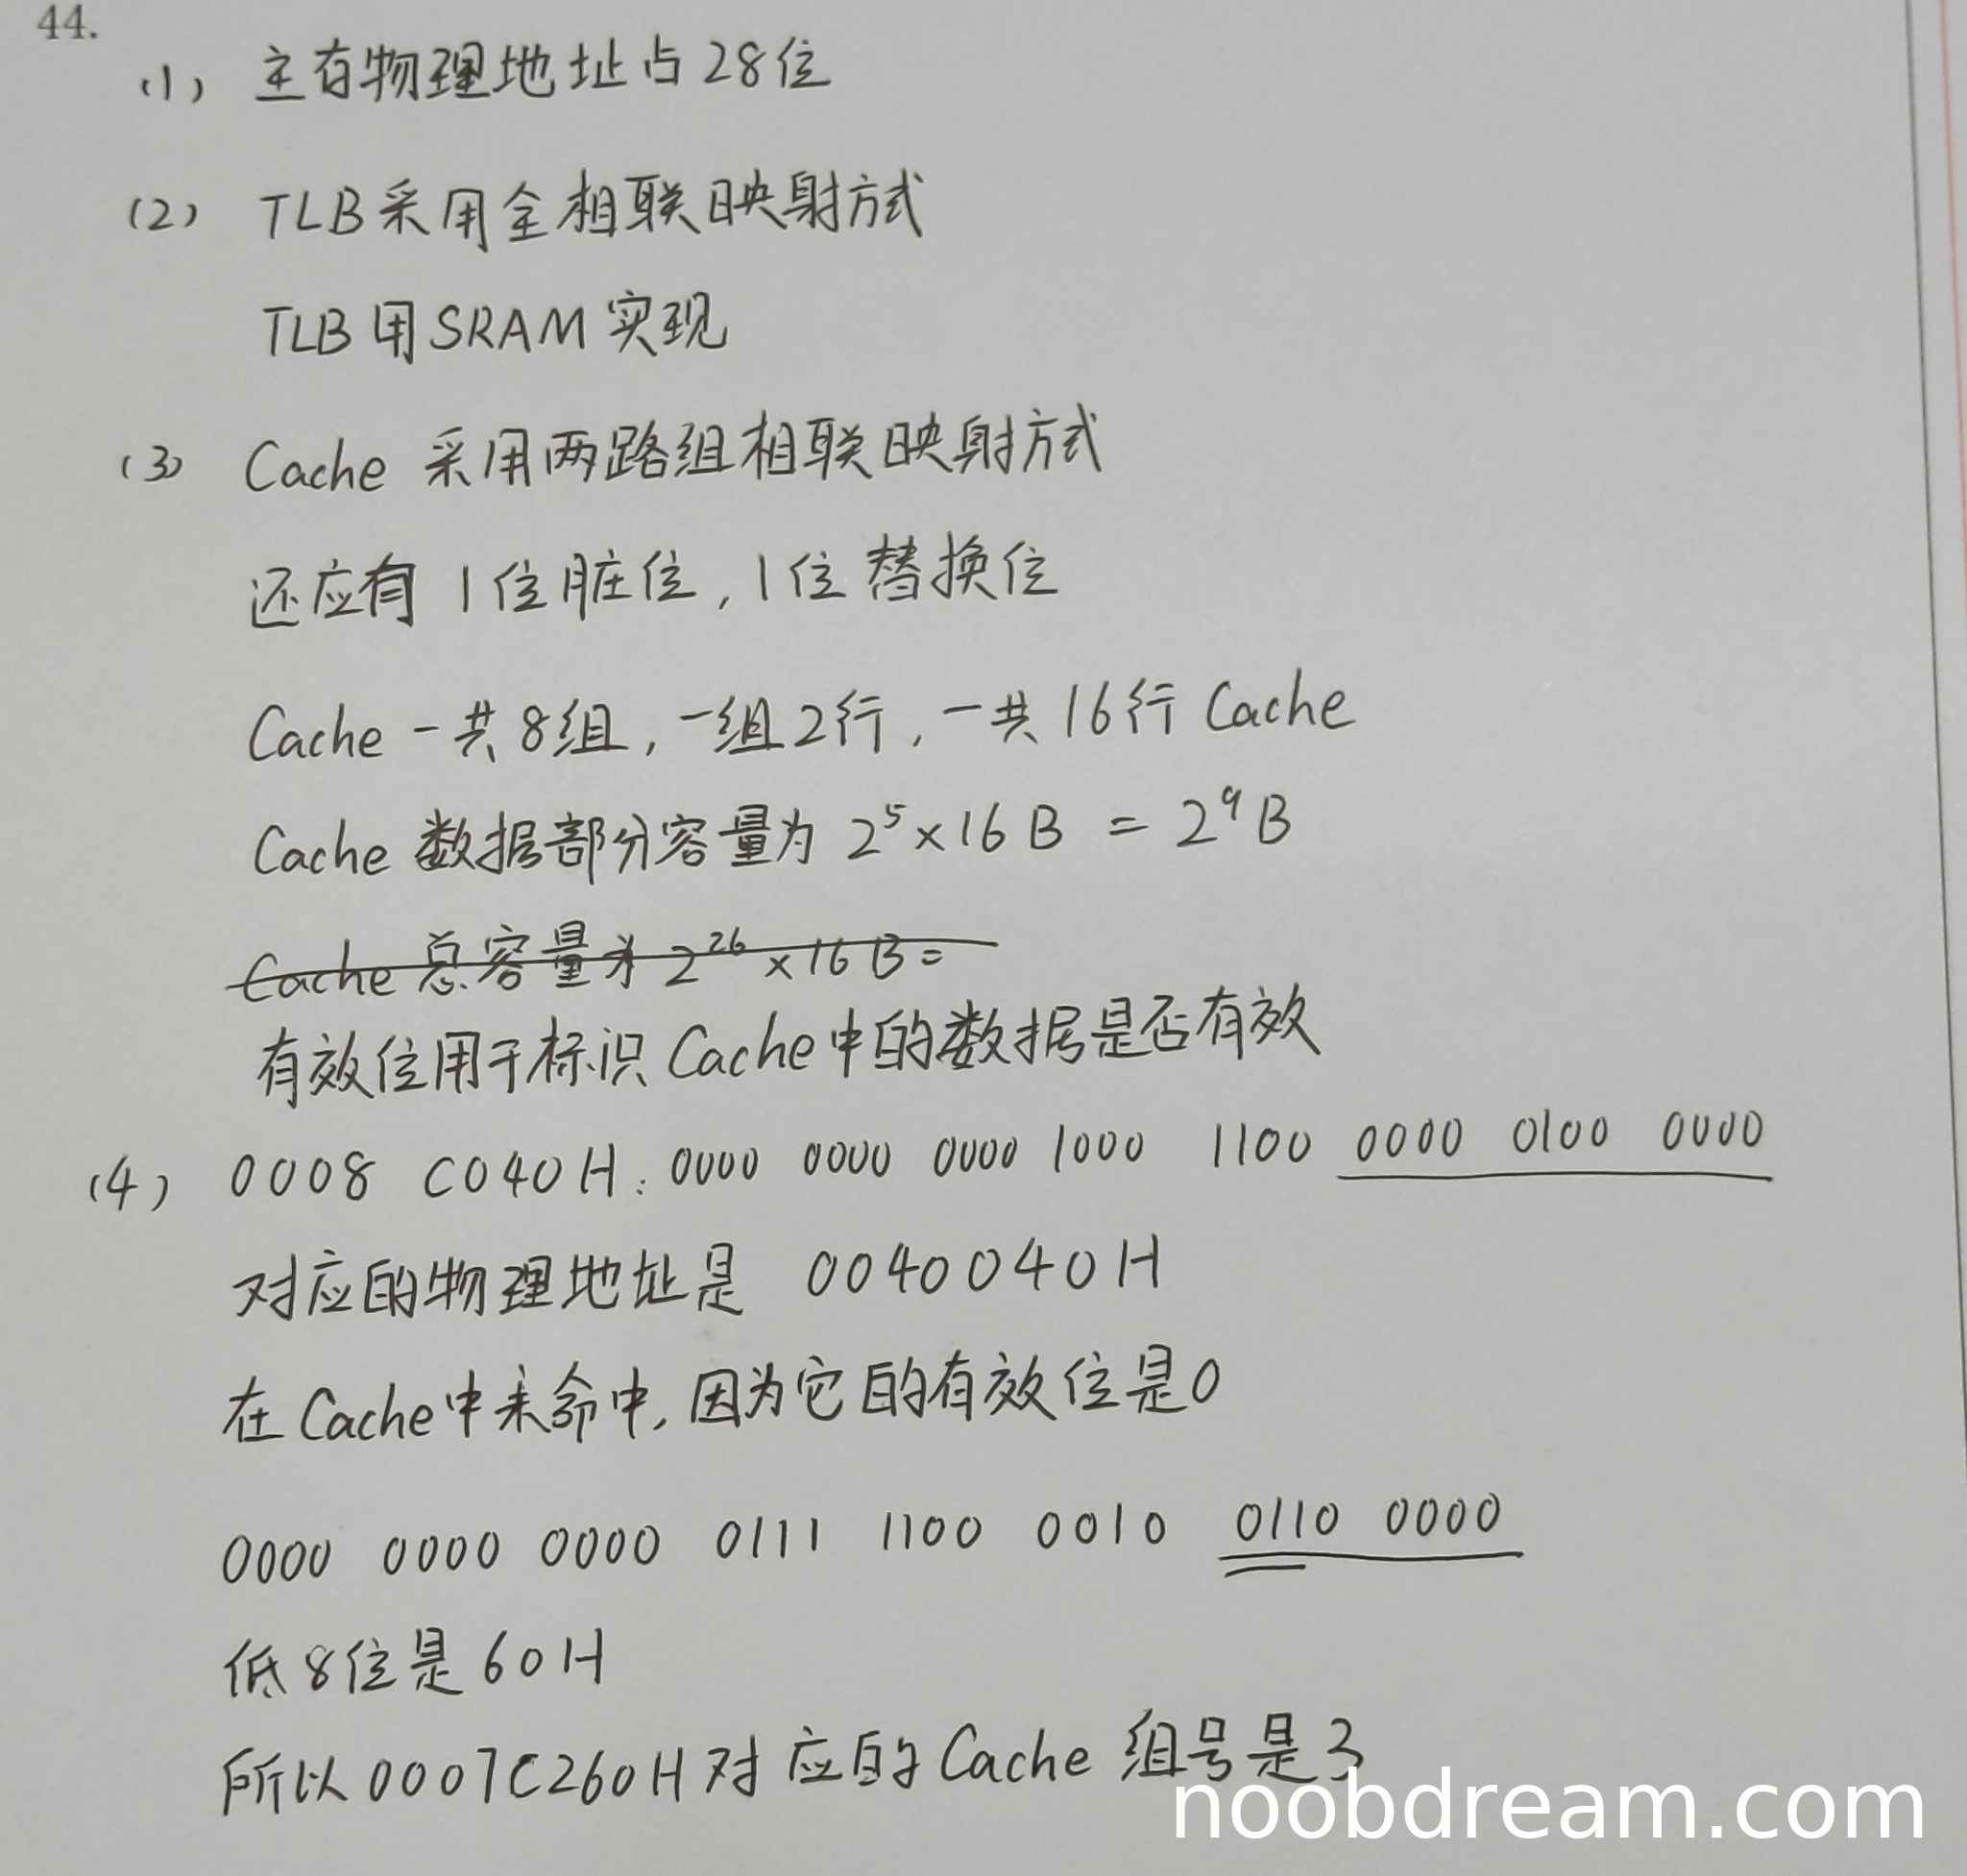 44.
(1) 主存物理地址占28位
(2) TLB采用全相联映射方式
TLB用SRAM实现
(3) Cache 采用两路组相联映射方式
还应有 1位脏位, 1位替换位
Cache 一共8组, 一组2行, 一共16行 Cache
Cache 数据部分容量为 2⁵×16B = 2⁹B
Cache 总容量为 2²⁶×16B=
有效位用于标识Cache中的数据是否有效
(4) 0008 C040H: 0000 0000 0000 1000 1100 0000 0100 0000
对应的物理地址是 0040040H
在Cache中未命中, 因为它的有效位是0
0000 0000 0000 0111 1100 0010 0110 0000
低8位是60H
所以0007C260H对应的Cache 组号是3
noobdream.com